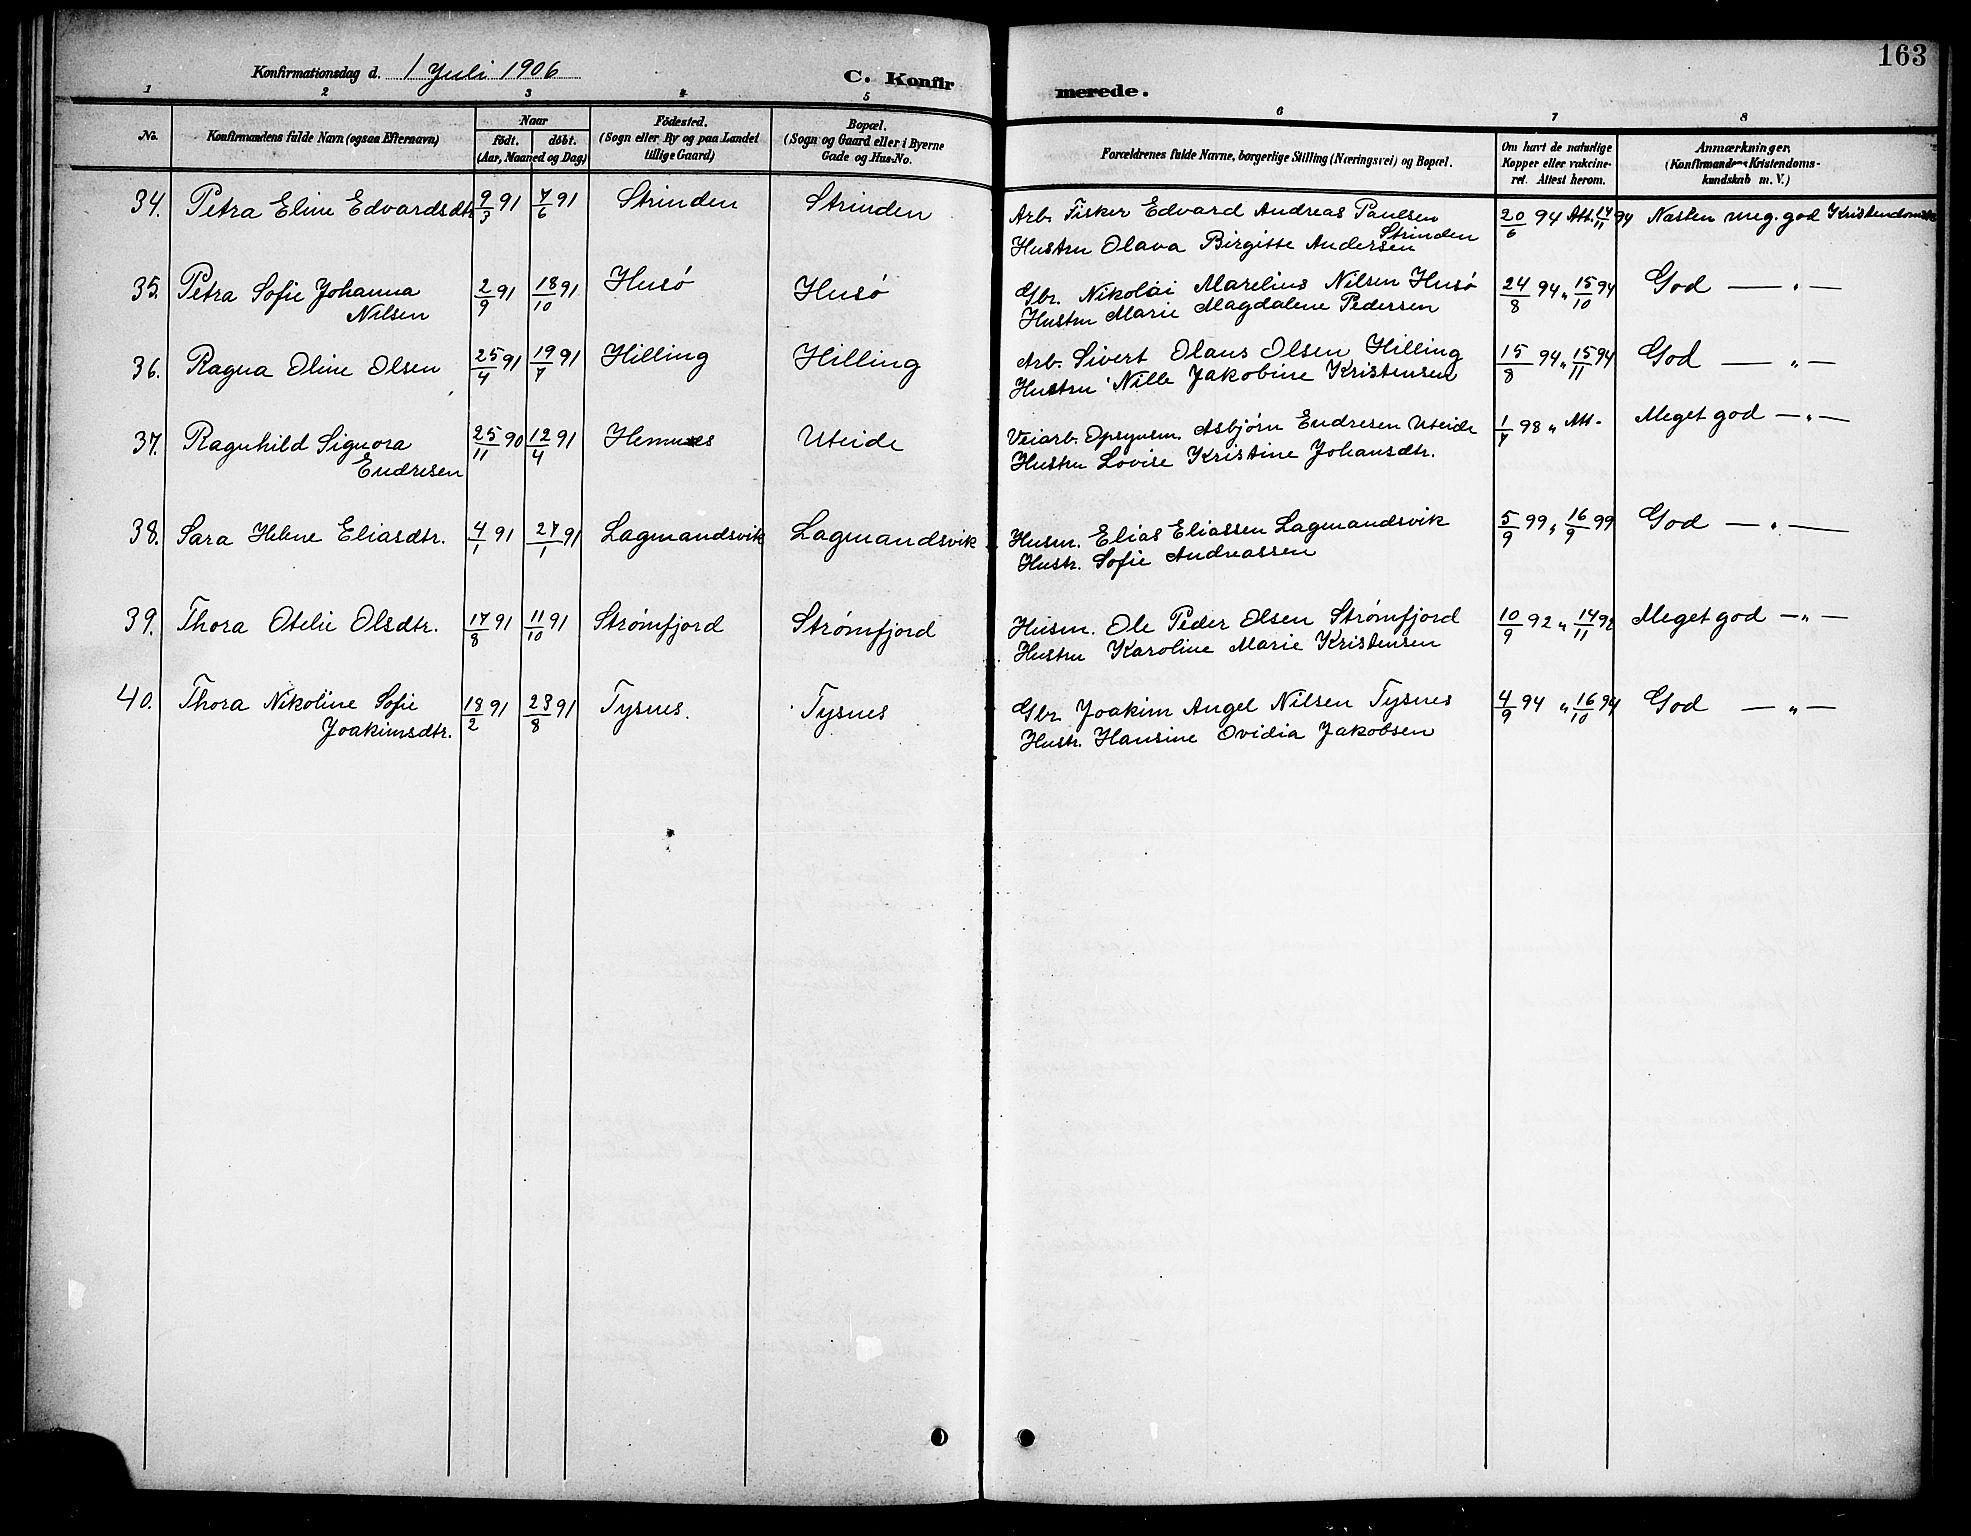 163
Konfirmationsdag d. 1 Juli 1906
C. Konfirmerede.
1 2 3 4 5 6 7 8
No. Konfirmandens fulde Navn (ogsaa Efternavn) Naar født. døbt. (Aar, Maaned og Dag) Fødested. (Sogn eller By og paa Landet tillige Gaard) Bopæl. (Sogn og Gaard eller i Byerne Gade og Hus-No. Forældrenes fulde Navne, borgerlige Stilling (Næringsvei) og Bopæl. Om havt de naturlige Kopper eller vakcineret. Attest herom. Anmærkninger, (Konfirmandens Kristendomskundskab m. V.)
34. Petra Eline Edvardsdtr. 9/3 91 7/6 91 Strinden Strinden Arb. Fisker Edvard Andreas Paulsen Strinden 20/6 94 Att. 14/11 94 Næsten meg. god Kristendomsk
Hustru Olava Birgitte Andersen
35. Petra Sofie Johanna 2/9 91 18/10 91 Husø Husø Gbr. Nikolai Marelius Nilsen Husø 24/8 94 „ 15/10 94 God — „ —
Nilsen Hustru Marie Magdalene Pedersen
36. Ragna Oline Olsen 25/4 91 19/7 91 Hilling Hilling Arb. Sivert Olaus Olsen Hilling 15/8 94 „ 15/11 94 God — „ —
Hustru Nille Jakobine Kristensen
37. Ragnhild Signora 25/11 90 12/4 91 Hemnes Uteide Veiarb. Opsynsm. Asbjørn Endresen Uteide 1/7 98 „ Att. Meget god — „ —
Endresen Hustru Lovise Kristine Johansdtr.
38. Sara Helene Eliasdtr. 4/1 91 27/1 91 Lagmandsvik Lagmandsvik Husm. Elias Eliassen Lagmandsvik 5/9 99 „ 16/9 99 God — „ —
Hustr. Sofie Andreassen
39. Thora Otelie Olsdtr. 17/8 91 11/10 91 Strømfjord Strømfjord Husm. Ole Peder Olsen Strømfjord 10/9 92 „ 14/11 92 Meget god — „ —
Hustru Karoline Marie Kristensen
40. Thora Nikoline Sofie 18/2 91 23/8 91 Tysnes. Tysnes Gbr. Joakim Angel Nilsen Tysnes 4/9 94 „ 16/10 94 God — „ —
Joakimsdtr. Hustr. Hansine Ovidia Jakobsen